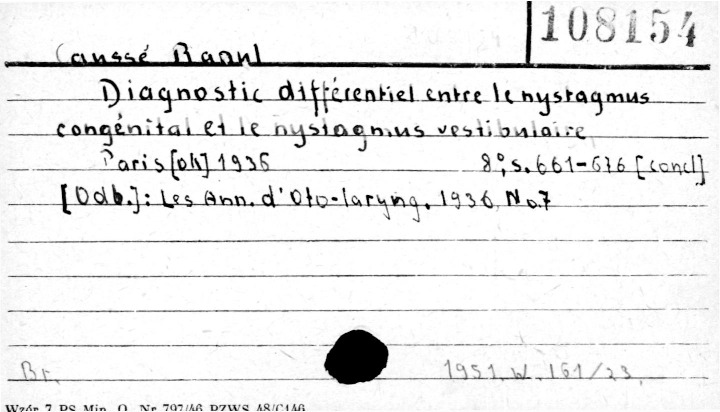 108154
Caussé Raoul
Diagnostic différentiel entre le nystagmus
congénital et le nystagmus vestibulaire
Paris [ok] 1936 8°, s. 661-676 [concl]
[Odb.]: Les Ann. d'Oto-laryng. 1936, No.7
Br. 1951. W. 161/23.
Wzór 7 PS Min. O. Nr 797/46 PZWS 48/C146